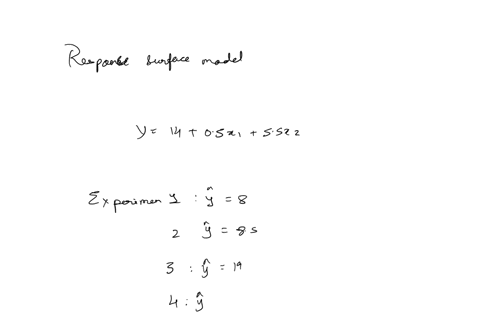 Response surface model
y = 14 + 0.5x₁ + 5.5x₂
Experimen 1 : ŷ = 8
2 ŷ = 8s
3 : ŷ = 19
4 : ŷ